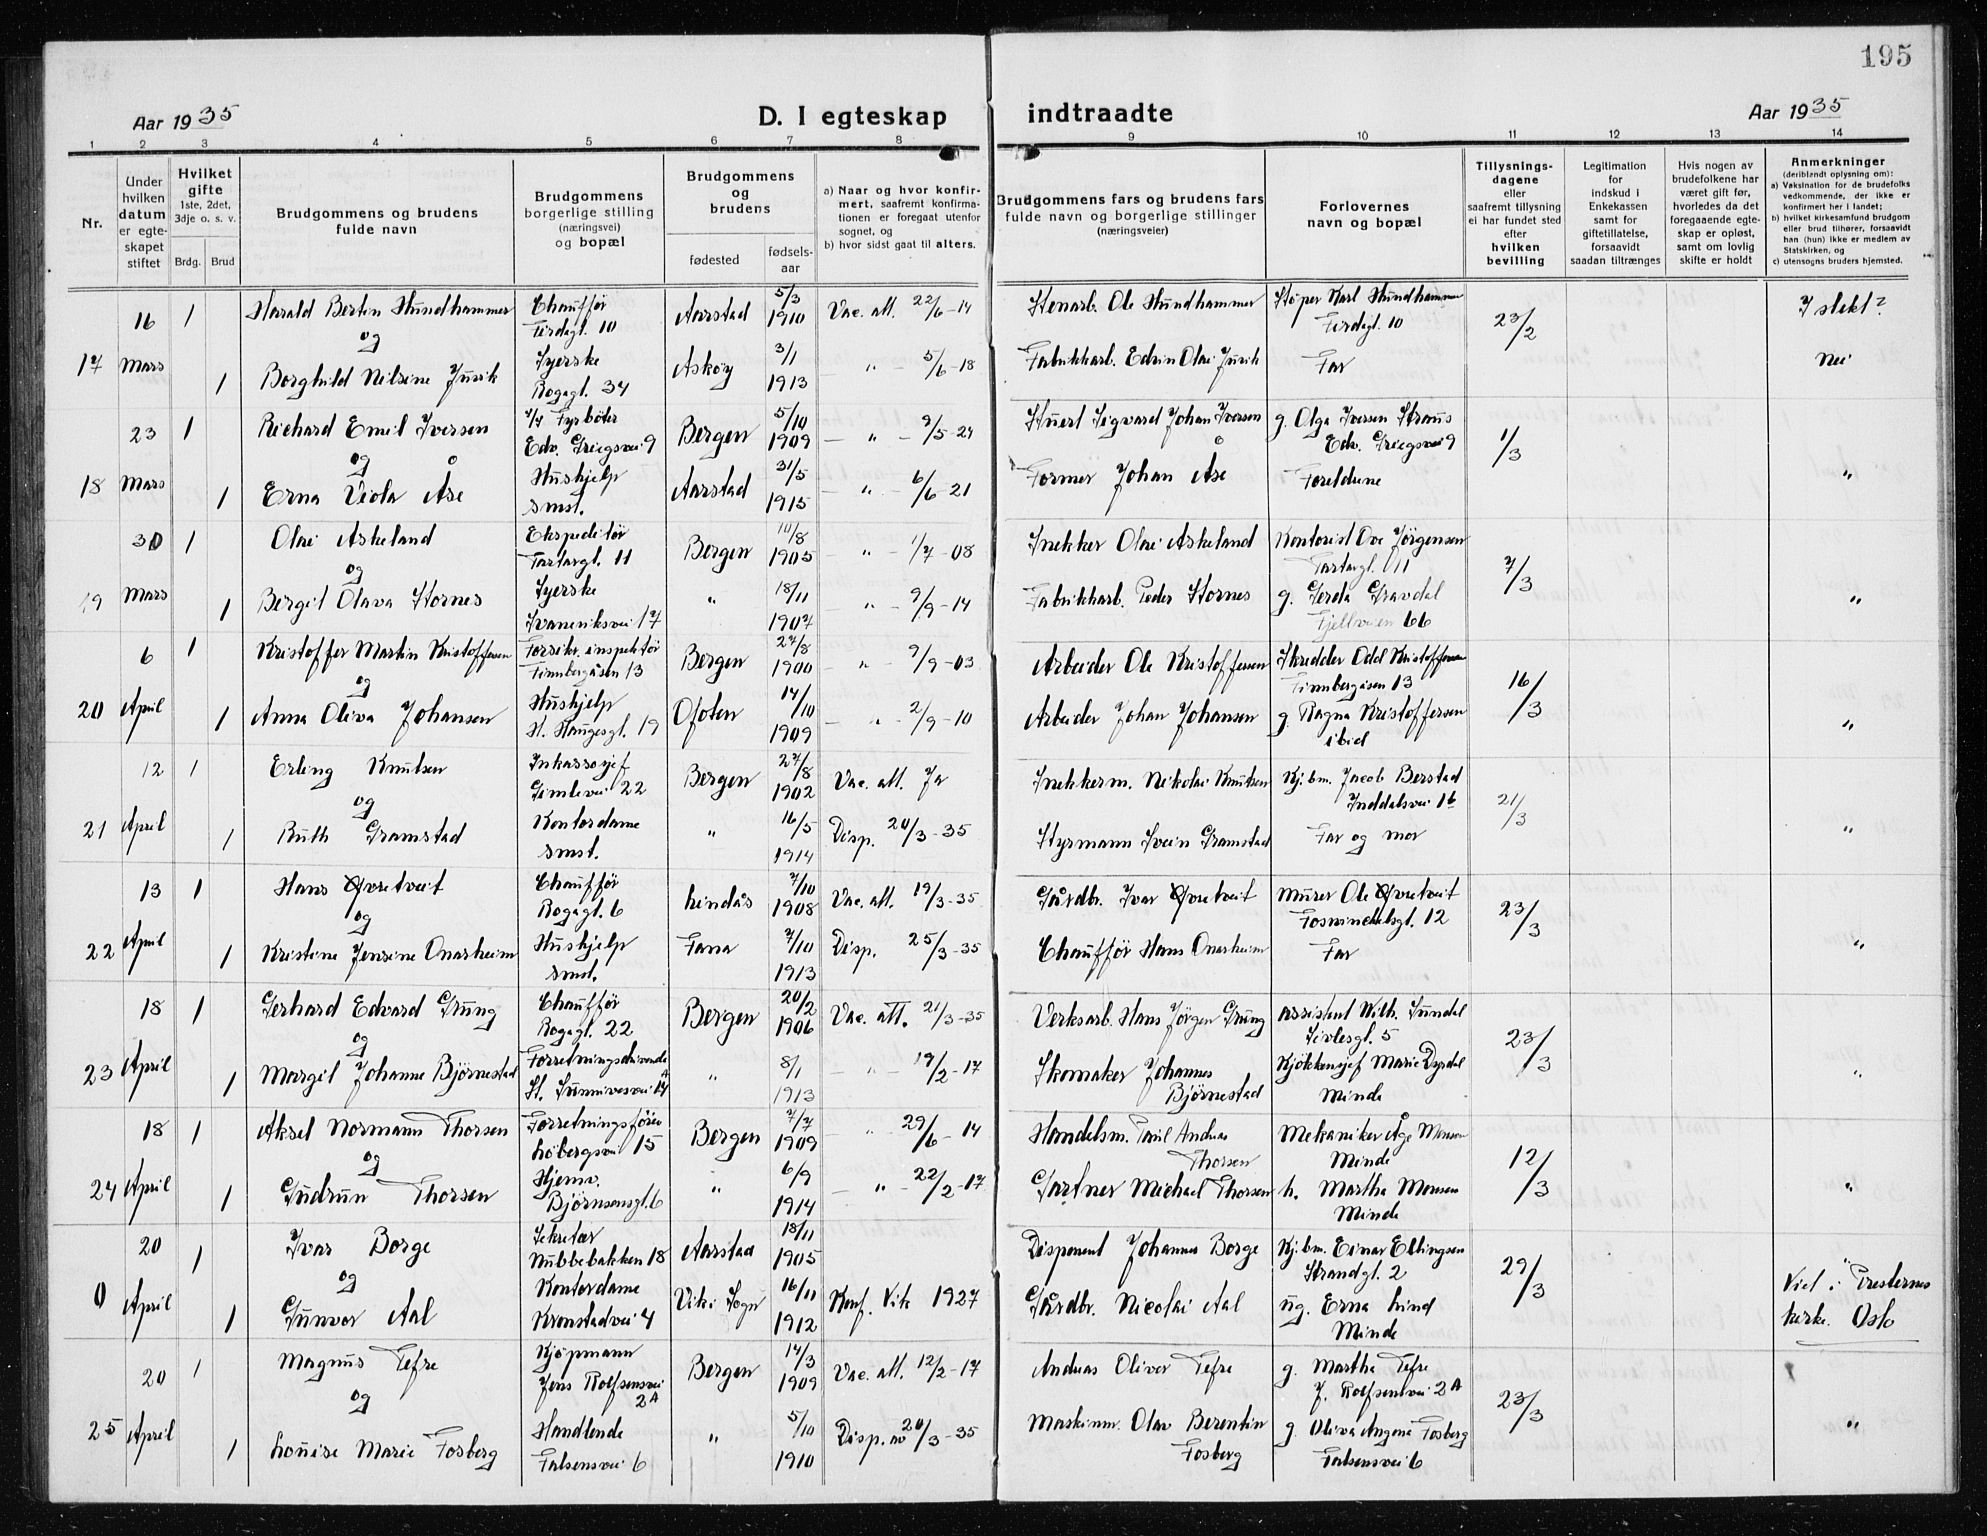 195
Aar 1935
D. I egteskap indtraadte
Aar 1935
1 2 3 4 5 6 7 8 9 10 11 12 13 14
Nr.
Under hvilken datum er egteskapet stiftet
Hvilket gifte 1ste, 2det, 3dje o. s. v.
Brdg. Brud
Brudgommens og brudens fulde navn
Brudgommens borgerlige stilling (næringsvei) og bopæl
Brudgommens og brudens
fødested
fødselsaar
a) Naar og hvor konfirmert, saafremt konfirmationen er foregaat utenfor sognet, og
b) hvor sidst gaat til alters.
Brudgommens fars og brudens fars fulde navn og borgerlige stillinger (næringsveier)
Forlovernes navn og bopæl
Tillysningsdagene eller saafremt tillysning ei har fundet sted efter hvilken bevilling
Legitimation for indskud i Enkekassen samt for giftetillatelse, forsaavidt saadan tiltrænges
Hvis nogen av brudefolkene har været gift før, hvorledes da det foregaaende egteskap er opløst, samt om lovlig skifte er holdt
Anmerkninger (deriblandt oplysning om):
a) Vaksination for de brudefolks vedkommende, der ikke er konfirmert her i landet;
b) hvilket kirkesamfund brudgom eller brud tilhører, forsaavidt han (hun) ikke er medlem av Statskirken, og
c) utensogns bruders hjemsted.
16 1 Harald Bertin Hundhammer Chauffør Firdagt. 10 Aarstad 5/3 1910 Vac. att. 22/6-14 Stenarb. Ole Hundhammer Støper Karl Hundhammer Firdagt. 10 23/2 I slekt?
og
17 Mars 1 Borghild Nilsine Juvik Syerske Rogagt. 34 Askøy 3/1 1913 — " — 5/6-18 Fabrikkarb. Edvin Olai Juvik Far Nei
23 1 Richard Emil Iversen Fyrbøter Edv. Griegsvei 9 Bergen 5/10 1909 — " — 9/5-24 Stuert Sigvard Johan Iversen g. Olga Iversen Edv. Griegsvei 9 1/3
og
18 Mars 1 Erna Viola Åse Hushjelp smst. Aarstad 31/5 1915 — " — 6/6-21 Former Johan Åse Foreldrene "
30 1 Olai Askeland Ekspeditør Tartargt. 11 Bergen 10/8 1905 — " — 1/7-08 Snekker Olai Askeland Kontorist Ove Jörgensen Tartargt. 11 7/3
og
19 Mars 1 Bergit Olava Stornes Syerske Ivaneriksvei 17 " 18/11 1907 — " — 9/9-14 Fabrikkarb. Peder Stornes g. Gerda Gravdal Fjellveien 66 "
6 1 Kristoffer Martin Kristoffersen Forsikr. inspektør Finnbergåsen 13 Bergen 27/8 1900 — " — 9/9-03 Arbeider Ole Kristoffersen Skredder Odd Kristoffersen Finnbergåsen 13 16/3
og
20 April 1 Anna Oliva Johansen Hushjelp H. Haugesgt. 19 Ofoten 14/10 1909 — " — 2/9-10 Arbeider Johan Johansen g. Ragna Kristoffersen ibid "
12 1 Erling Knutsen Inkassosjef Gimlevei 22 Bergen 27/8 1902 Vac. att. Ja Snekkerm. Nikolai Knutsen Kj.bm. Jacob Berstad Inddalsvei 16 21/3
og
21 April 1 Ruth Gramstad Kontordame smst. " 16/5 1914 Disp. 20/3-35 Styrmann Svein Gramstad Far og mor "
13 1 Hans Øvretveit Chauffør Rogagt. 6 Lindås 7/10 1908 Vac. att. 19/3-35 Gårdbr. Ivar Øvretveit Murer Ole Øvretveit Fosswinckelsgt. 12 23/3
og
22 April 1 Kristine Jensine Onarheim Hushjelp smst. Fana 7/10 1913 Disp. 25/3-35 Chauffør Hans Onarheim Far "
18 1 Gerhard Edvard Grung Chauffør Rogagt. 22 Bergen 20/2 1906 Vac. att. 21/3-35 Verksarb. Hans Jørgen Grung Assistent Wilh. Sundal Sivlesgt. 5 23/3
og
23 April 1 Margit Johanne Bjørnestad Forretningsdrivende St. Sunnivesvei 14 A " 8/1 1913 — " — 19/2-17 Skomaker Johannes Bjørnestad Kjøkkensjef Marie Dyrdal Minde "
18 1 Aksel Normann Thorsen Forretningsfører Løbergsvei 15 Bergen 7/7 1909 " 29/6-14 Handelsm. Paul Andreas Thorsen Mekaniker Åge Monsen Minde 12/3
og
24 April 1 Gudrun Thorsen Hjemv. Bjørnsonsgt. 6 " 6/9 1914 — " — 22/2-17 Gartner Michael Thorsen h. Martha Monsen Minde "
20 1 Ivar Borge Sekretær Nubbebakken 18 Aarstad 18/11 1905 Disponent Johannes Borge Kj.bm. Einar Ellingsen Strandgt. 2 29/3 "
og
0 April 1 Gunvor Aal Kontordame Kronstadvei 4 Vik i Sogn 16/11 1912 Konf. Vik 1927 Gårdbr. Nicolai Aal ug. Erna Lind Minde Viet i Presternes kirke. Oslo
20 1 Magnus Tefre Kjøpmann Jens Rolfsensvei 2A Bergen 14/3 1909 Vac. att. 12/2-17 Andreas Oliver Tefre g. Martha Tefre J. Rolfsensvei 2A 23/3
og
25 April 1 Louise Marie Fosberg Handlende Falsensvei 6 " 5/10 1910 Disp. av 20/3-35 Maskinm. Olav Berentin Fosberg g. Oliva Angene Fosberg Falsensvei 6 "